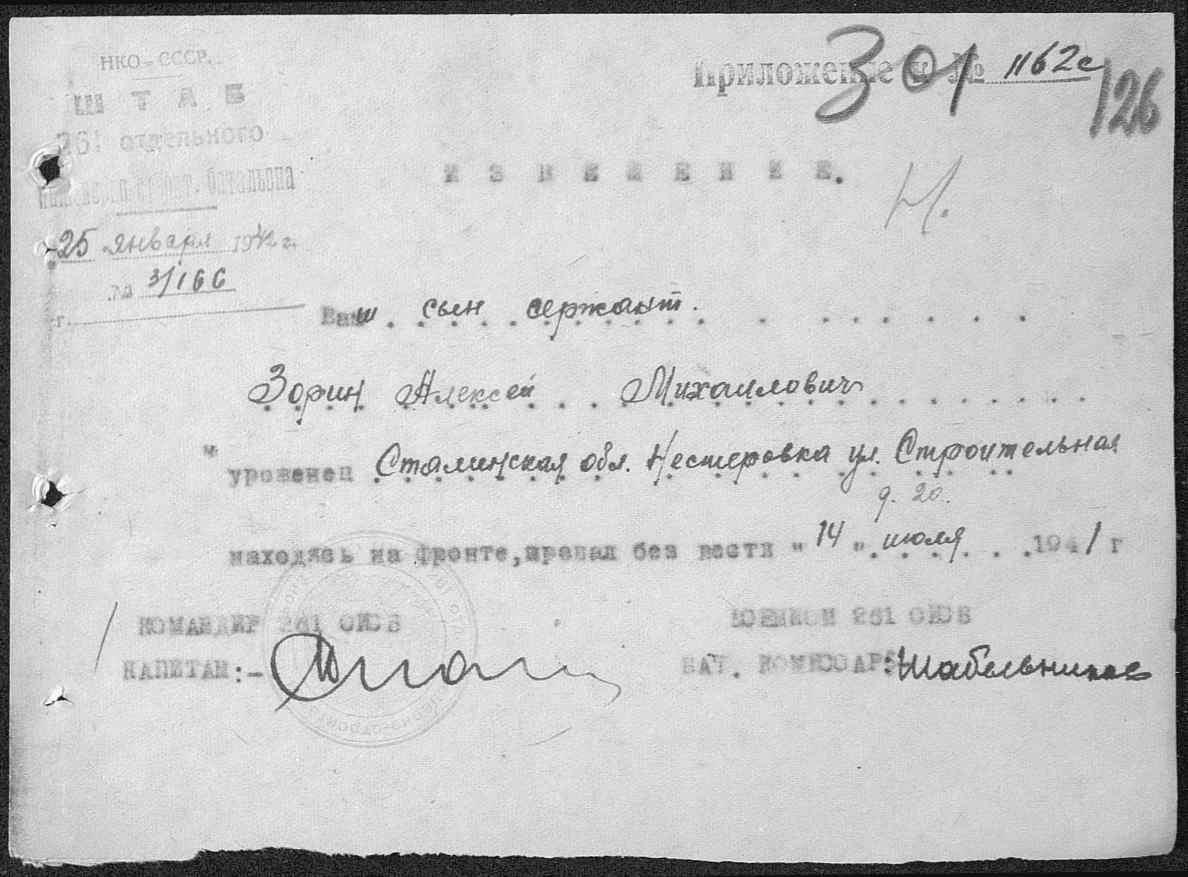 НКО-СССР.
ШТАБ
261 отдельного
инженерн. строит. батальона
25 января 1942 г.
№ 3/166
г.
Приложение к № 1162с
301
126
ИЗВЕЩЕНИЕ.
Н.
Ваш сын сержант.
Зорин Алексей Михаилович
уроженец Сталинская обл. Нестеровка ул. Строительная
д. 20.
находясь на фронте, пропал без вести "14" июля 1941 г
КОМАНДИР 261 ОИСБ
ВОЕНКОМ 261 ОИСБ
КАПИТАН:-
БАТ. КОМИССАР: Шабельников